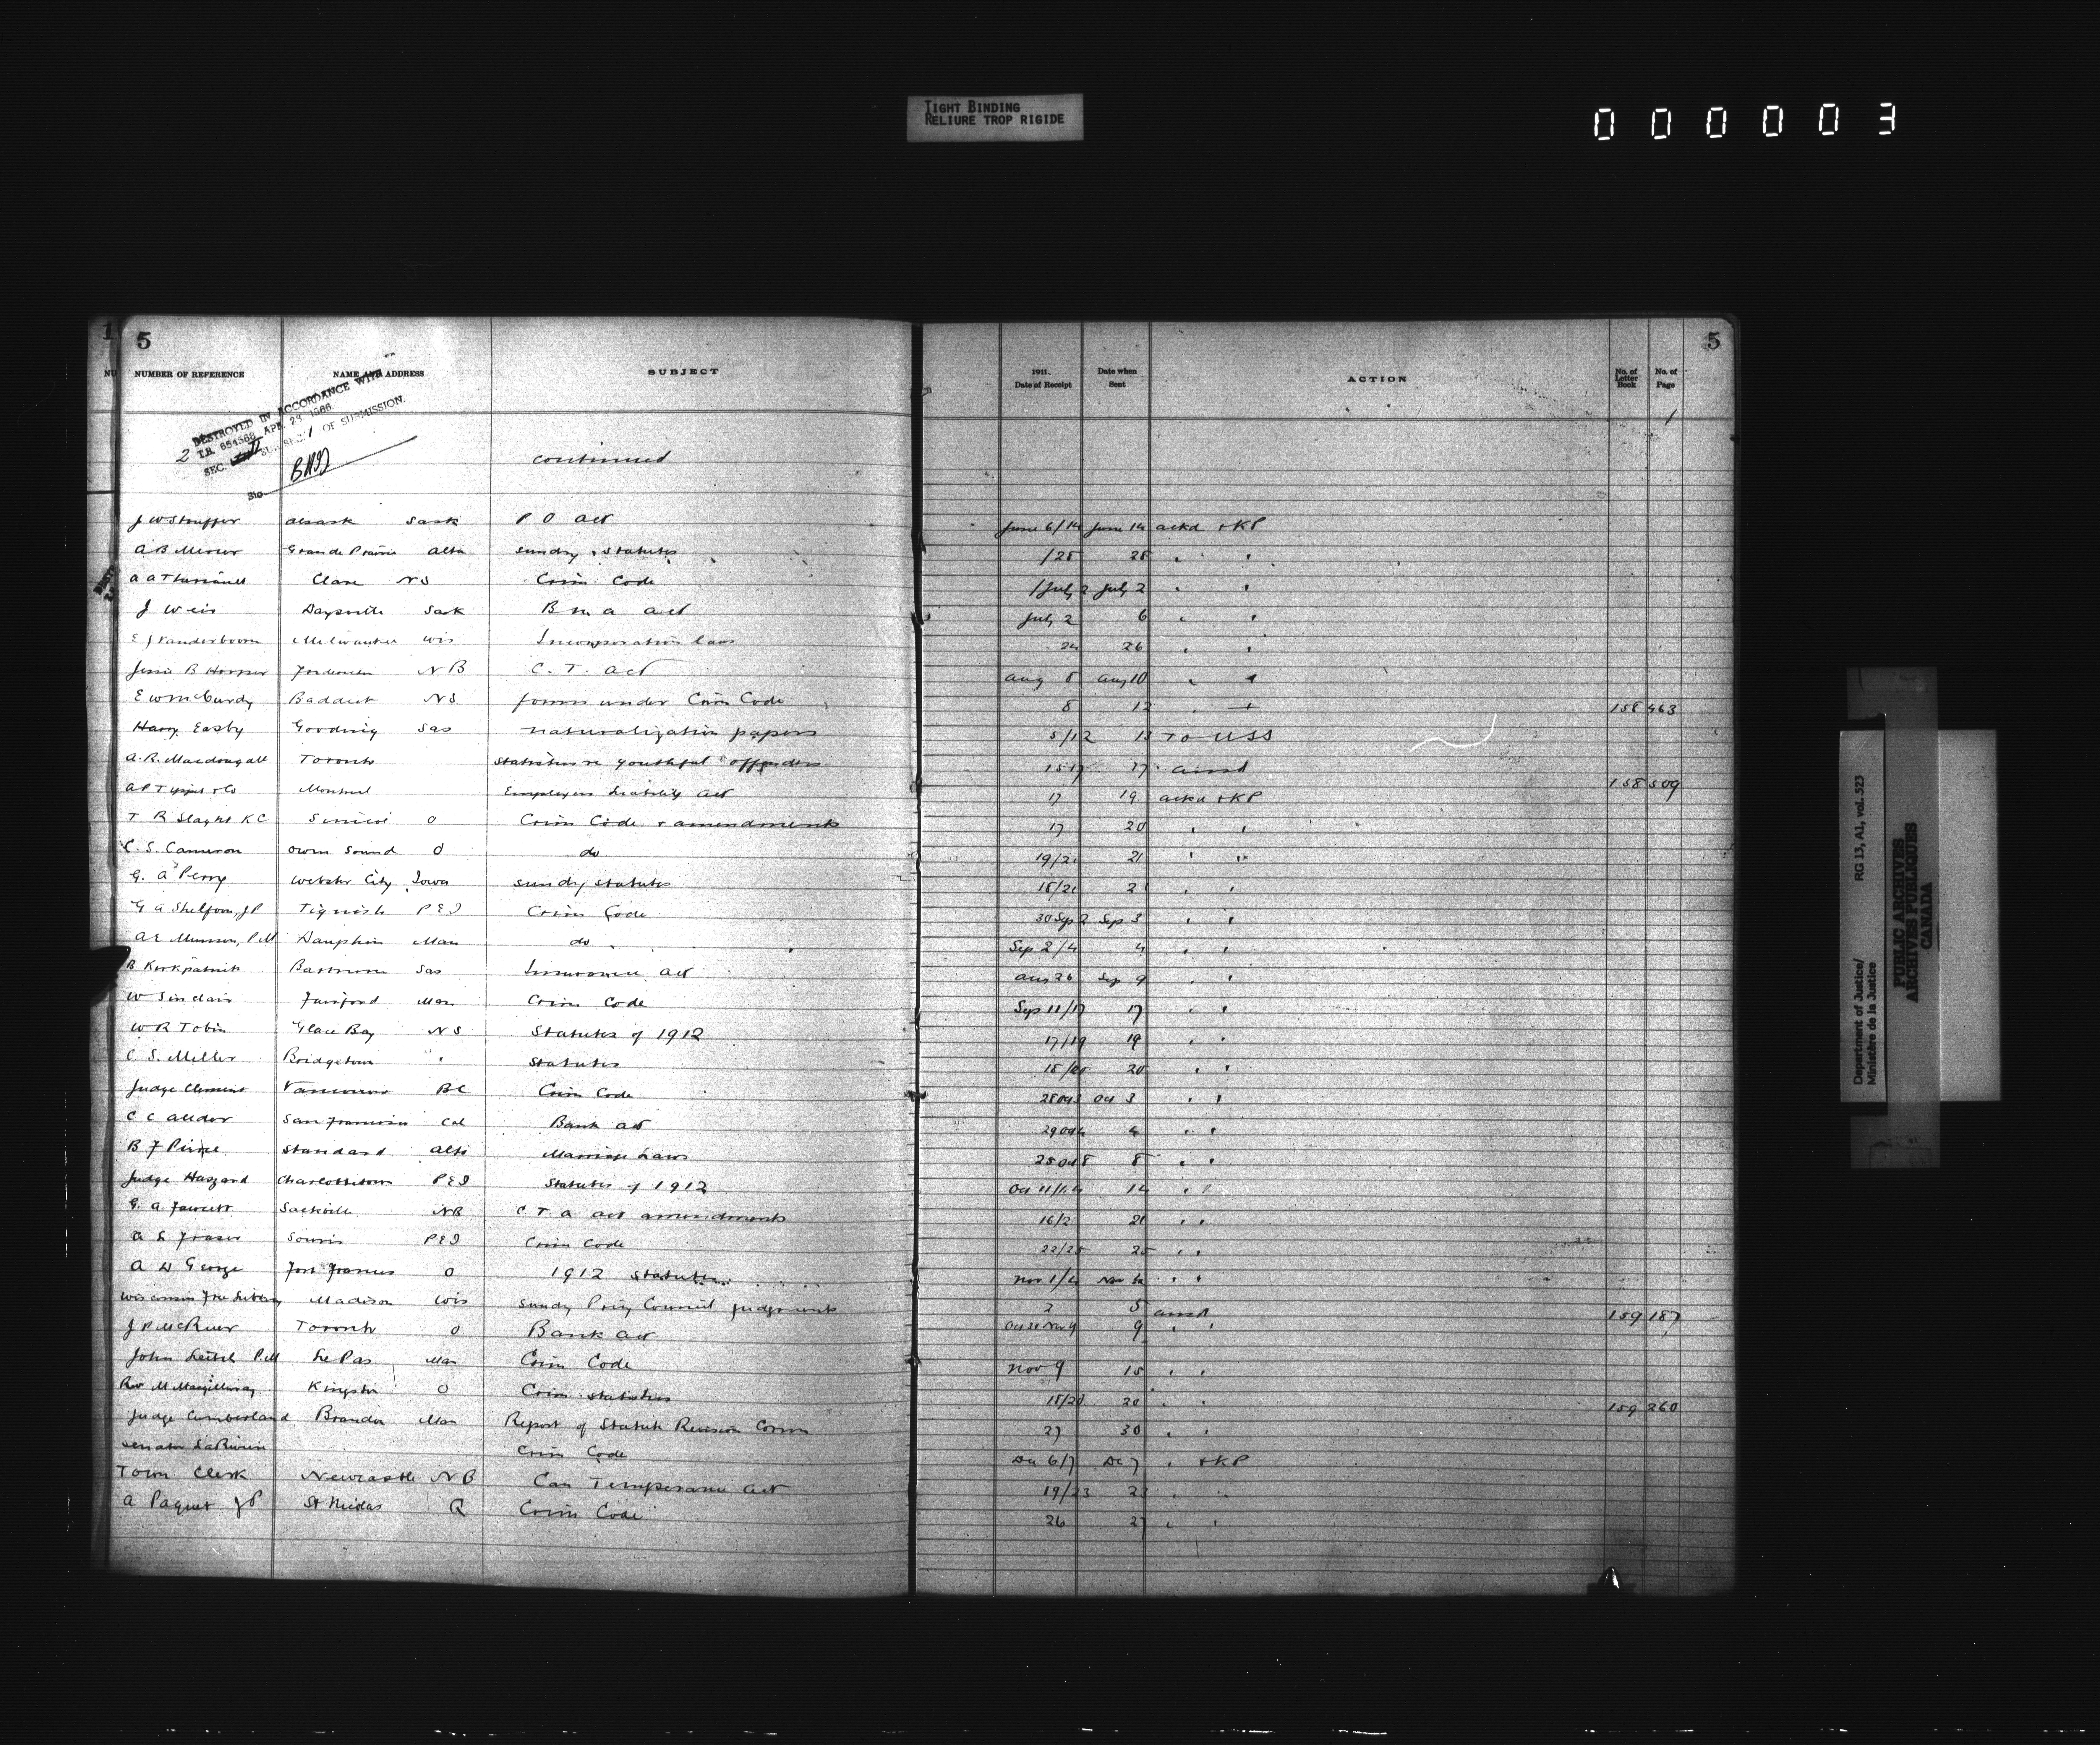 TIGHT BINDING
RELIURE TROP RIGIDE
000003
5
5
NUMBER OF REFERENCE NAME WITH ADDRESS SUBJECT 1911. Date of Receipt Date when Sent ACTION No. of Letter Book No. of Page
DESTROYED IN ACCORDANCE WITH
2 T.B. 654566 APR. 29 1966
SEC. SUB. SEC. 1 OF SUBMISSION.
continued
J W Stouffer Alsask Sask P O Act June 6/14 June 14 ackd + KP
A B Mercer Grande Prairie Alta sundry statutes /28 28 " "
Clare NS Crim Code /July 2 July 2 " "
J Weir Daysville Sask B n a act July 2 6 " "
E J Vanderboom Milwaukee Wis Incorporation laws 24 26 " "
Jessie B Hooper NB C. T. Act Aug 8 Aug 10 " "
E W McCurdy Baddeck NS forms under Crim Code 8 12 " + 158 463
Harry Easby Gooding Sas naturalization papers 5/12 13 To USS
A. R. Macdougall Toronto Statistics re youthful offenders 15 17 17 ansd 158 509
Montreal Employers Liability Act 17 19 ackd + KP
T R Slaght KC Simcoe O Crim Code + amendments 17 20 " "
C. S. Cameron Owen Sound O do 19/21 21 " "
G. A Perry Webster City Iowa sundry statutes 18/21 21 " "
G A Shelfoon, JP Tignish PEI Crim Code 30 Sep 2 Sep 3 " "
A E Munson, P.M Dauphin Man do Sep 2/4 4 " "
B Kirkpatrick Sas Insurance Act Aug 26 Sep 9 " "
W Sinclair Fairford Man Crim Code Sep 11/17 17 " "
W R Tobin Glace Bay NS Statutes of 1912 17/19 19 " "
C. S. Miller Bridgetown " Statutes 18/20 20 " "
Judge Clement Vancouver BC Crim Code 28 Oct 3 Oct 3 " "
C C San Francisco Cal Bank Act 29 Oct 4 4 " "
B F Peirce Standard Alta Marriage Laws 25 Oct 8 8 " "
Judge Haszard Charlottetown PEI Statutes of 1912 Oct 11/14 14 " "
G. A. Fawcett Sackville NB C. T. A act amendments 16/2 21 " "
A L Fraser Souris PEI Crim Code 22/25 25 " "
A D George Fort Frances O 1912 Statutes Nov 1/4 Nov 4 " "
Wisconsin Free Library Madison Wis Sundry Privy Council judgments 2 5 ansd 159 187
J P McRuer Toronto O Bank Act Oct 28 Nov 9 9 " "
John Leitch P.M Le Pas Man Crim Code Nov 9 15 " "
Rev M Macgillivray Kingston O Crim. statistics 18/20 20 " " 159 260
Judge Cumberland Brandon Man Report of Statute Revision Comm 27 30 " "
Senator LaRiviere Crim Code Dec 6/7 Dec 7 " + KP
Town Clerk Newcastle NB Can Temperance Act 19/23 23 " "
A Paquet JP Q Crim Code 26 27 " "
Department of Justice/
Ministère de la Justice
RG 13, A1, vol. 523
PUBLIC ARCHIVES
ARCHIVES PUBLIQUES
CANADA